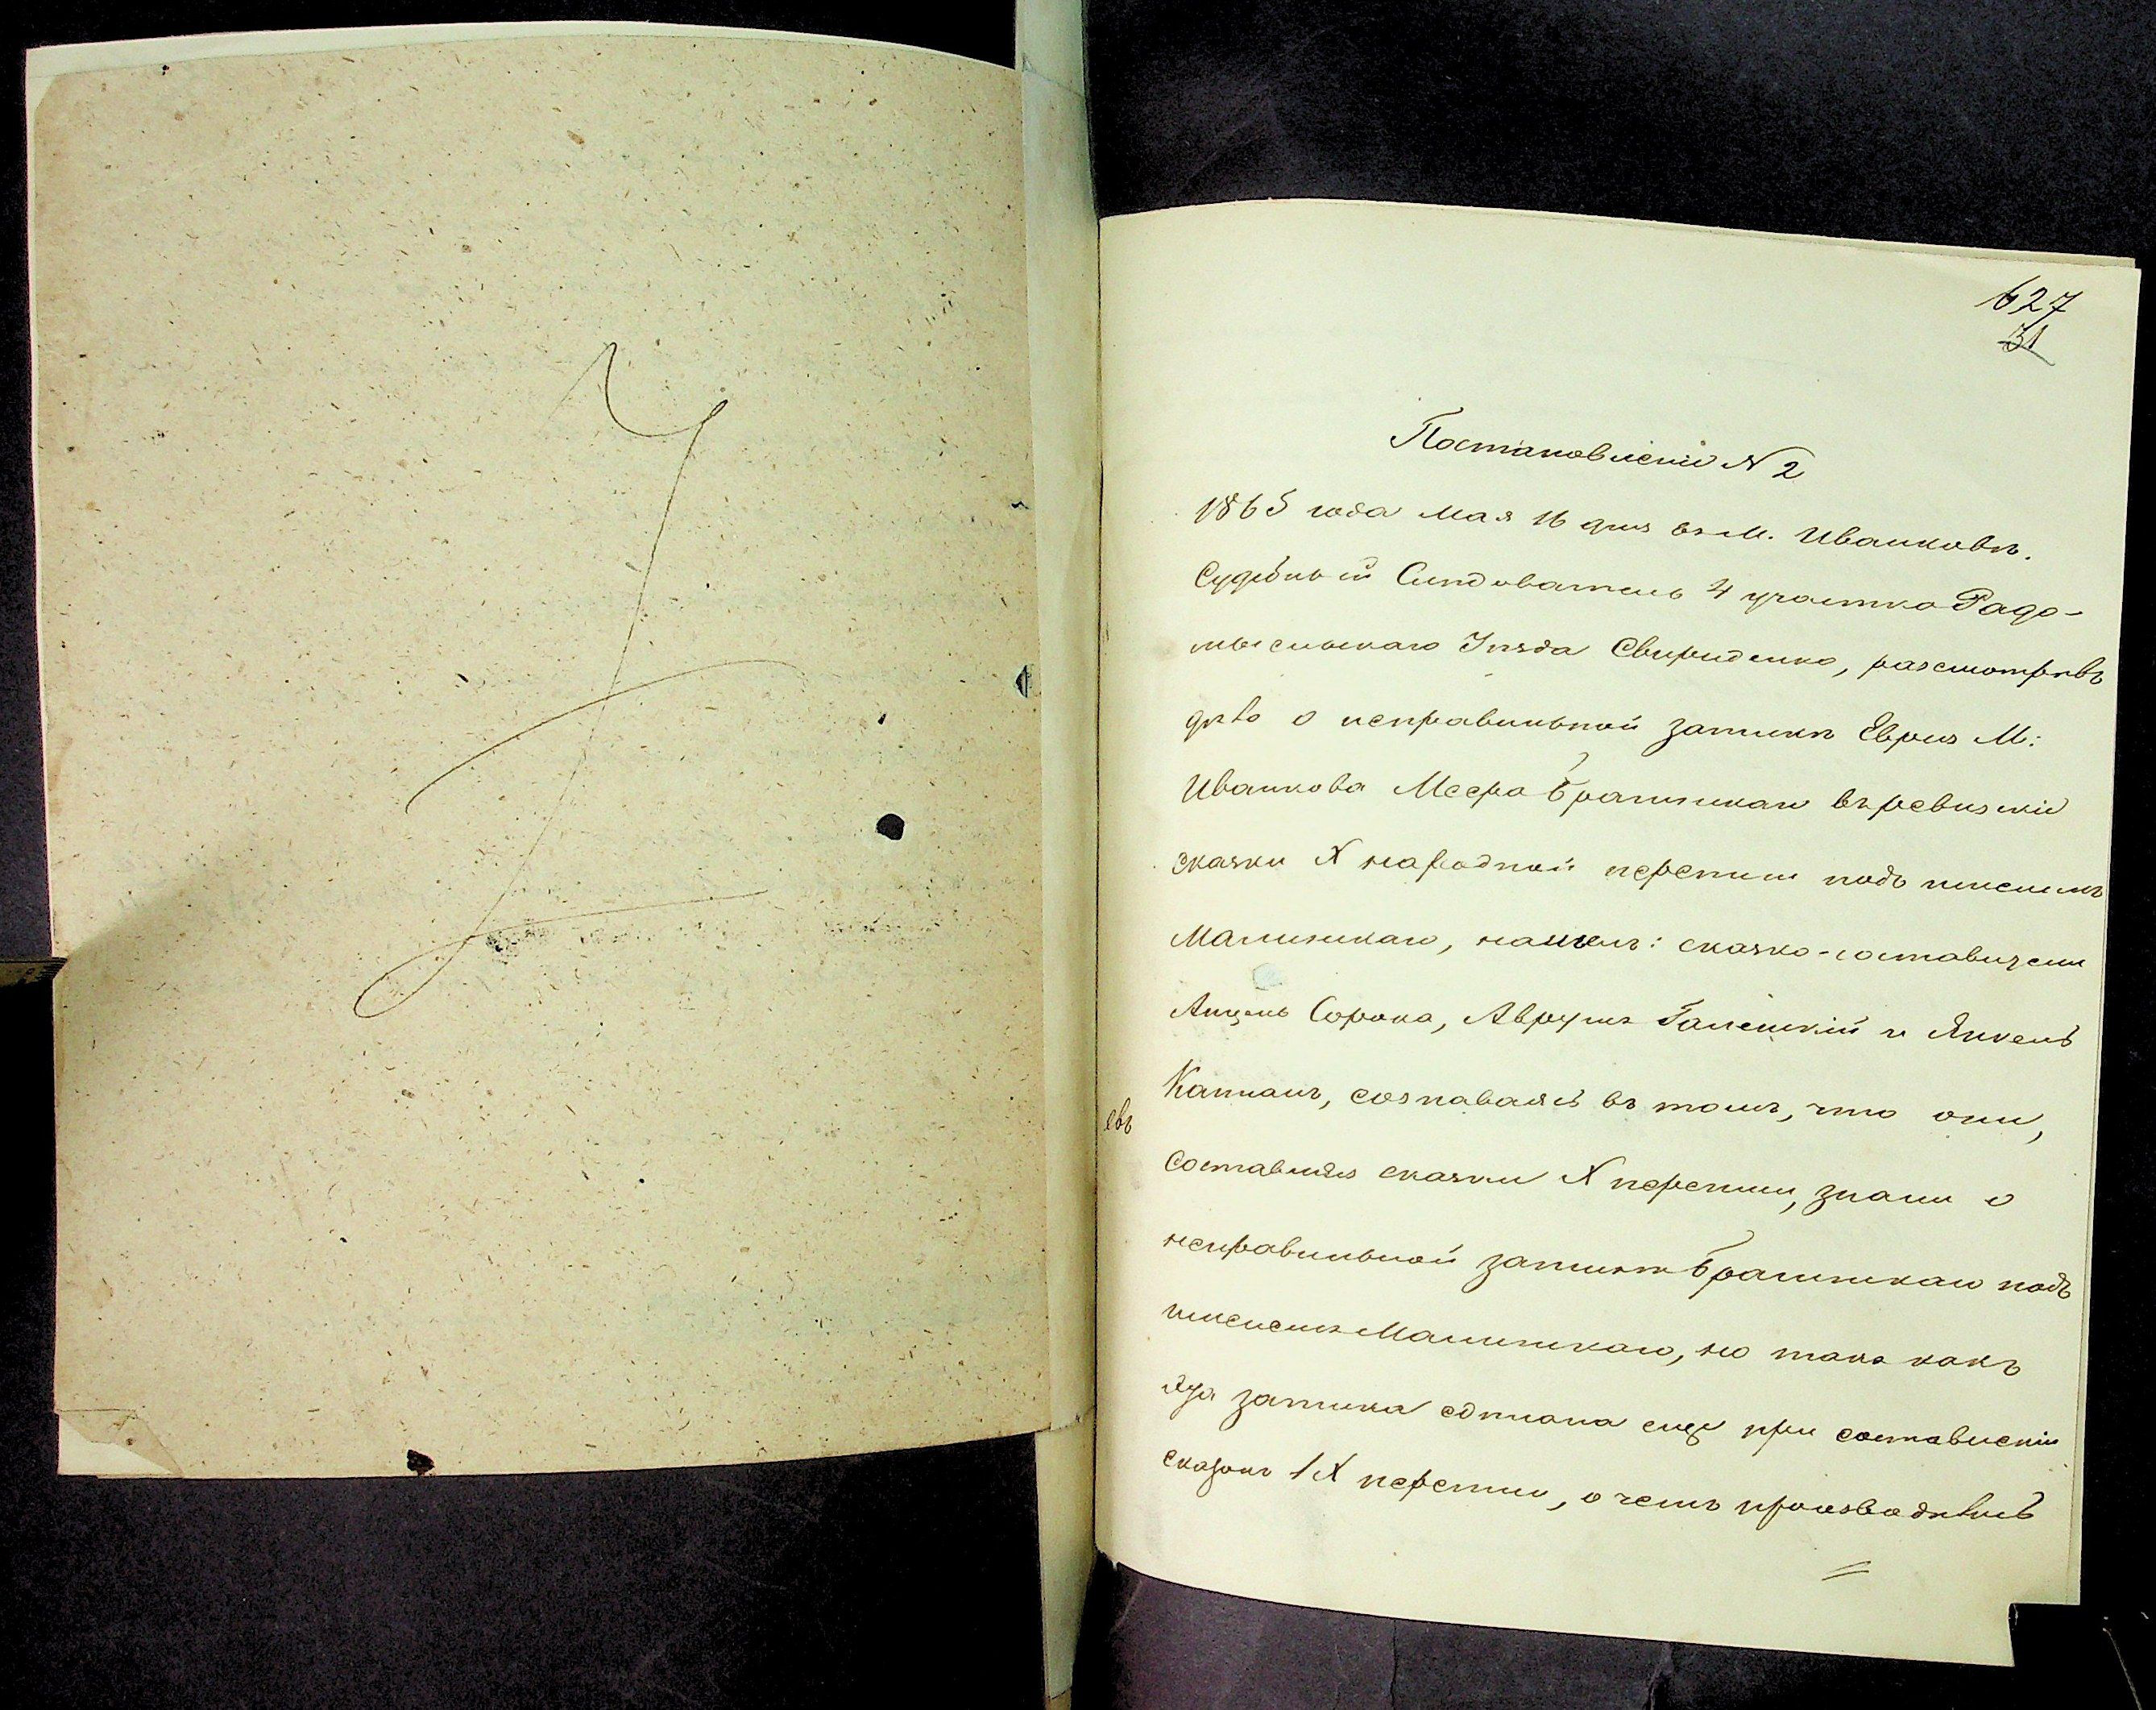 627
31
Постановленіе N 2
1865 года мая 16 дня въ м. Иванковѣ.
Судебный Слѣдователь 4 участка Радо-
мысльскаго Уѣзда Свириденко, разсмотрѣвъ
дѣло о неправильной запискѣ Еврея М:
Иванкова Меера Брагинскаго въ ревизскіе
сказки X народной переписи подъ именемъ
Малинскаго, нашелъ: сказко-составители
Анцель Сорока, Аврумъ Галецкій и Янкель
Капланъ, сознавались въ томъ, что они,
евъ
составляя сказки X переписи, знали о
неправильной запискѣ Брагинскаго подъ
именемъ Малинскаго, но такъ какъ
эта записка сдѣлана еще при составленіи
сказокъ IX переписи, о чемъ производилось